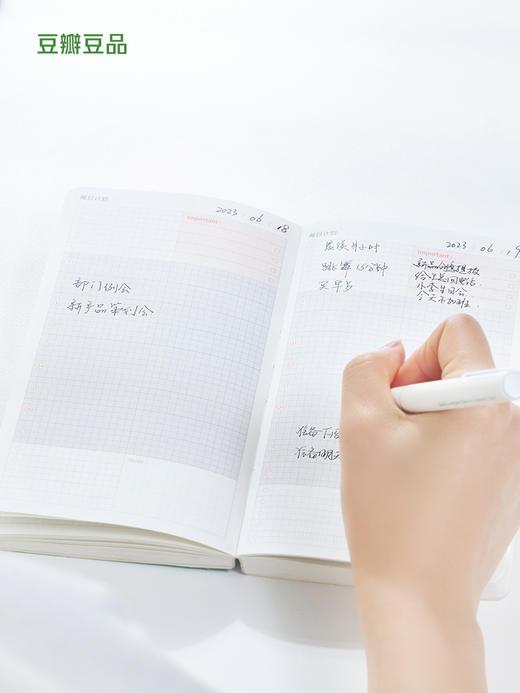 豆瓣豆品
每日计划
2023 . 06 . 18
Important :
部门例会
新产品策划会
每日计划
2023 . 06 . 19
Important :
晨读半小时
跳舞 15分钟
买早点
新品创意提报
给王总回电话
小李生日会
今天不加班
准备下
准备明天